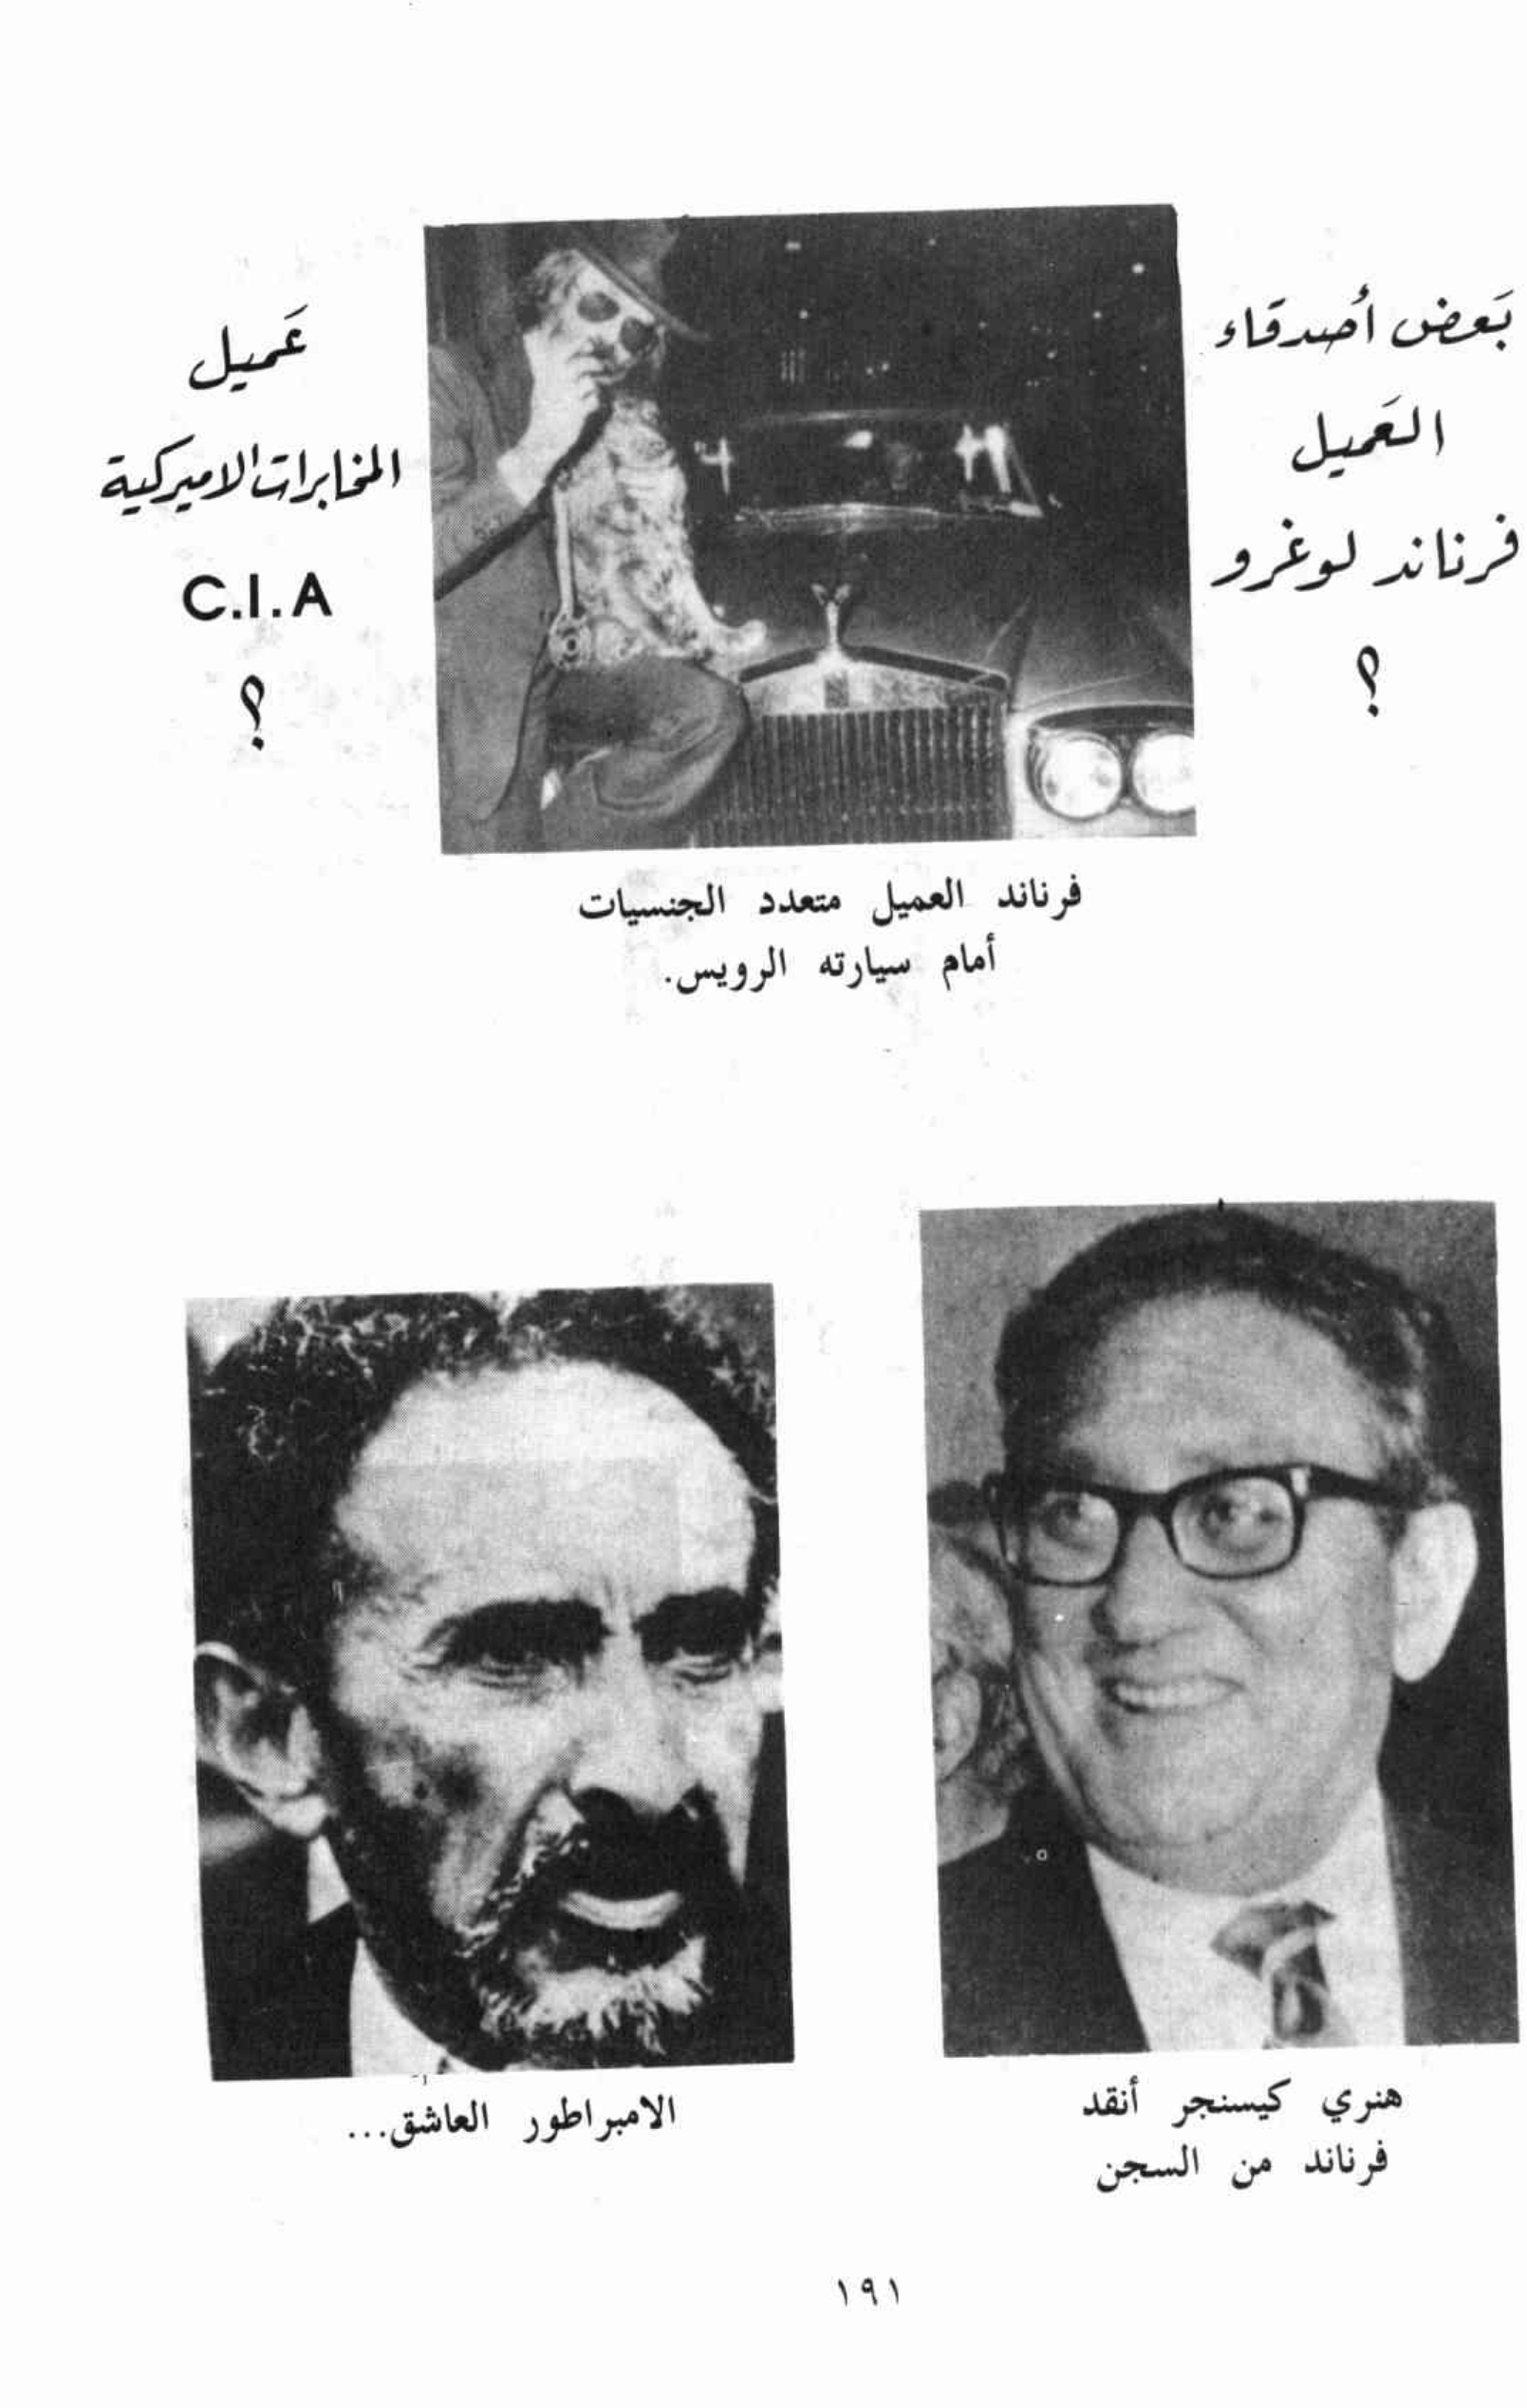 بَعض أصدقاء
العَميل
فرناند لوغرو
؟
عَميل
المخابرات الاميركية
C.I.A
؟
فرناند العميل متعدد الجنسيات
أمام سيارته الرويس.
هنري كيسنجر أنقد
فرناند من السجن
الامبراطور العاشق...
١٩١